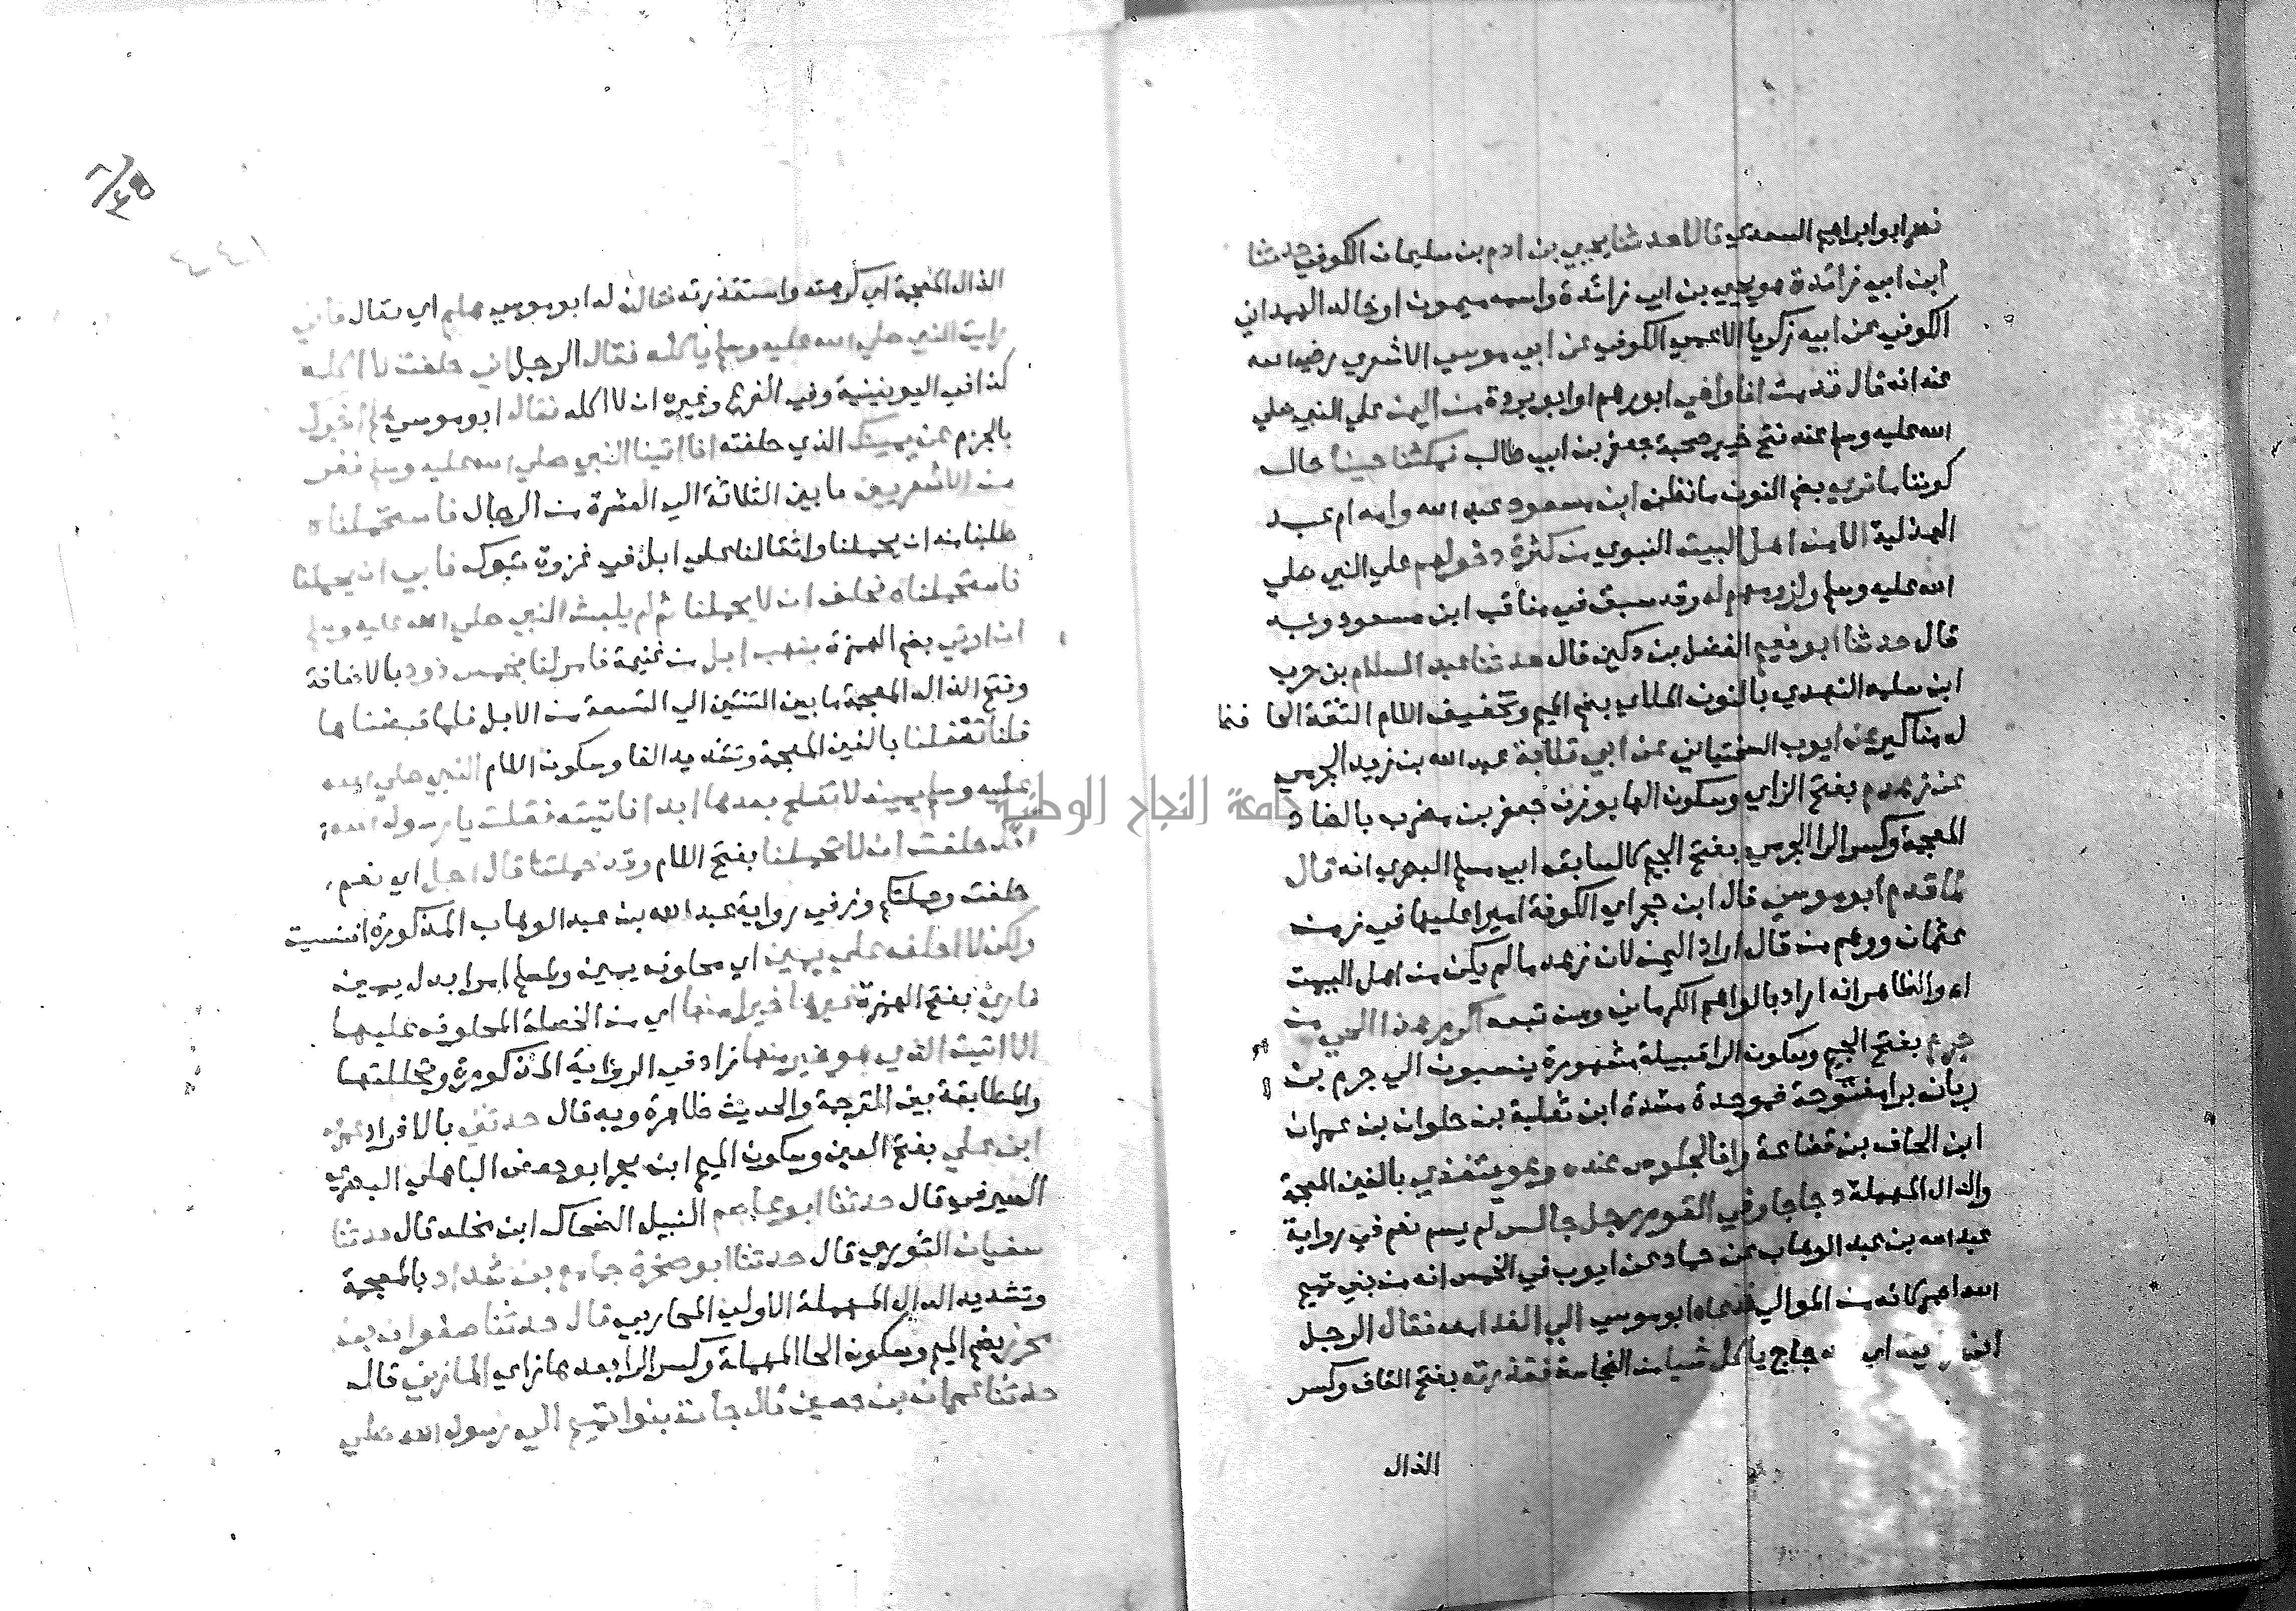 نصر ابو ابراهيم السعدي قالا حدثنا يحيي بن ادم بن سليمان الكوفي حدثنا
ابن ابي زائدة هو يحيي بن ابي زائدة واسمه ميمون او خالد الهمداني
الكوفي عن ابيه زكريا الاعمي الكوفي عن ابي موسي الاشعري رضي الله
عنه انه قال قدمت انا واخي ابو رهم او ابو بردة من اليمن علي النبي صلي
الله عليه وسلم عند فتح خيبر صحبة جعفر بن ابي طالب فمكثنا حينا حال
كوننا ما نري بضم النون ما نظن ابن مسعود عبد الله وامه ام عبد
الهذلية الا من اهل البيت النبوي من كثرة دخولهم علي النبي صلي
الله عليه وسلم ولزومهم له وقد سبق في مناقب ابن مسعود وبه
قال حدثنا ابو نعيم الفضل بن دكين قال حدثنا عبد السلام بن حرب
ابن سلمه النهدي بالنون الملاي بضم الميم وتخفيف اللام الثقة الحافظ
له مناكير عن ايوب السختياني عن ابي قلابة عبد الله بن زيد الجرمي
عن زهدم بفتح الزاي وسكون الها بوزن جعفر بن مضرب بالضاد
المعجمة وكسر الرا الجرمي بفتح الجيم كالسابق ابي مسلم البصري انه قال
لما قدم ابو موسي قال ابن حجر اي الكوفة اميرا عليها في زمن
عثمان ووهم من قال اراد اليمن لان زهدما لم يكن من اهل البيت
اه والظاهر انه اراد بالواهم الكرماني ومن تبعه اكرم هذا الحي من
جرم بفتح الجيم وسكون الرا قبيلة مشهورة ينسبون الي جرم بن
ربان برا مفتوحة فموحدة مشددة ابن ثعلبة بن حلوان بن عمران
ابن الحاف بن قضاعة وانا لجلوس عنده وهو يتغذي بالغين المعجمة
والدال المهملة دجاجا وفي القوم رجل جالس لم يسم نعم في رواية
عبد الله بن عبد الوهاب عن حماد عن ايوب في الخمس انه من بني تيم
الله احمر كانه من الموالي فدعاه ابو موسي الي الغدا معه فقال الرجل
اني رايته اي الدجاج ياكل شيا من النجاسة فقذرته بفتح القاف وكسر
الذال
الذال المعجمة اي كرهته واستقذرته فقال له ابو موسي هلم اي تعال فاني
رايت النبي صلي الله عليه وسلم ياكله فقال الرجل اني حلفت لا اكله
كذا في اليونينية وفي الفرع وغيره ان لا اكله فقال ابو موسي هلم اخبرك
بالجزم عن يمينك الذي حلفته انا اتينا النبي صلي الله عليه وسلم نفر
من الاشعريين ما بين الثلاثة الي العشرة من الرجال فاستحملناه
طلبنا منه ان يحملنا واثقالنا علي ابل في غزوة تبوك فابي ان يحملنا
فاستحملناه فحلف ان لا يحملنا ثم لم يلبث النبي صلي الله عليه وسلم
ان اوتي بضم الهمزة بنهب ابل من غنيمة فامر لنا بخمس ذود بالاضافة
وفتح الذال المعجمة ما بين الثنتين الي التسعة من الابل فلما قبضناها
قلنا تغفلنا بالغين المعجمة وتشديد الفا وسكون اللام النبي صلي الله
عليه وسلم يمينه لا نفلح بعدها ابدا فاتيته فقلت يا رسول الله
انك حلفت ان لا تحملنا بفتح اللام وقد حملتنا قال اجل اي نعم
حلفت وحملتكم وزاد في رواية عبد الله بن عبد الوهاب المذكورة افنسيت
ولكن لا احلف علي يمين اي محلوف يمين ولمسلم امر بدل يمين
فاري بفتح الهمزة غيرها خيرا منها اي من الخصلة المحلوف عليها
الا اتيت الذي هو خير منها زاد في الرواية المذكورة وتحللتها
والمطابقة بين الترجمة والحديث ظاهرة وبه قال حدثني بالافراد عمرو
ابن علي بفتح العين وسكون الميم ابن بحر ابو حفص الباهلي البصري
الصيرفي قال حدثنا ابو عاصم النبيل الضحاك ابن مخلد قال حدثنا
سفيان الثوري قال حدثنا ابو صخرة جامع بن شداد بالمعجمة
وتشديد الدال المهملة الاولي المحاربي قال حدثنا صفوان بن
محرز بضم الميم وسكون الحا المهملة وكسر الرا بعدها زاي المازني قال
حدثنا عمران بن حصين قال جات بنوا تميم الي رسول الله صلي
جامعة النجاح الوطنية